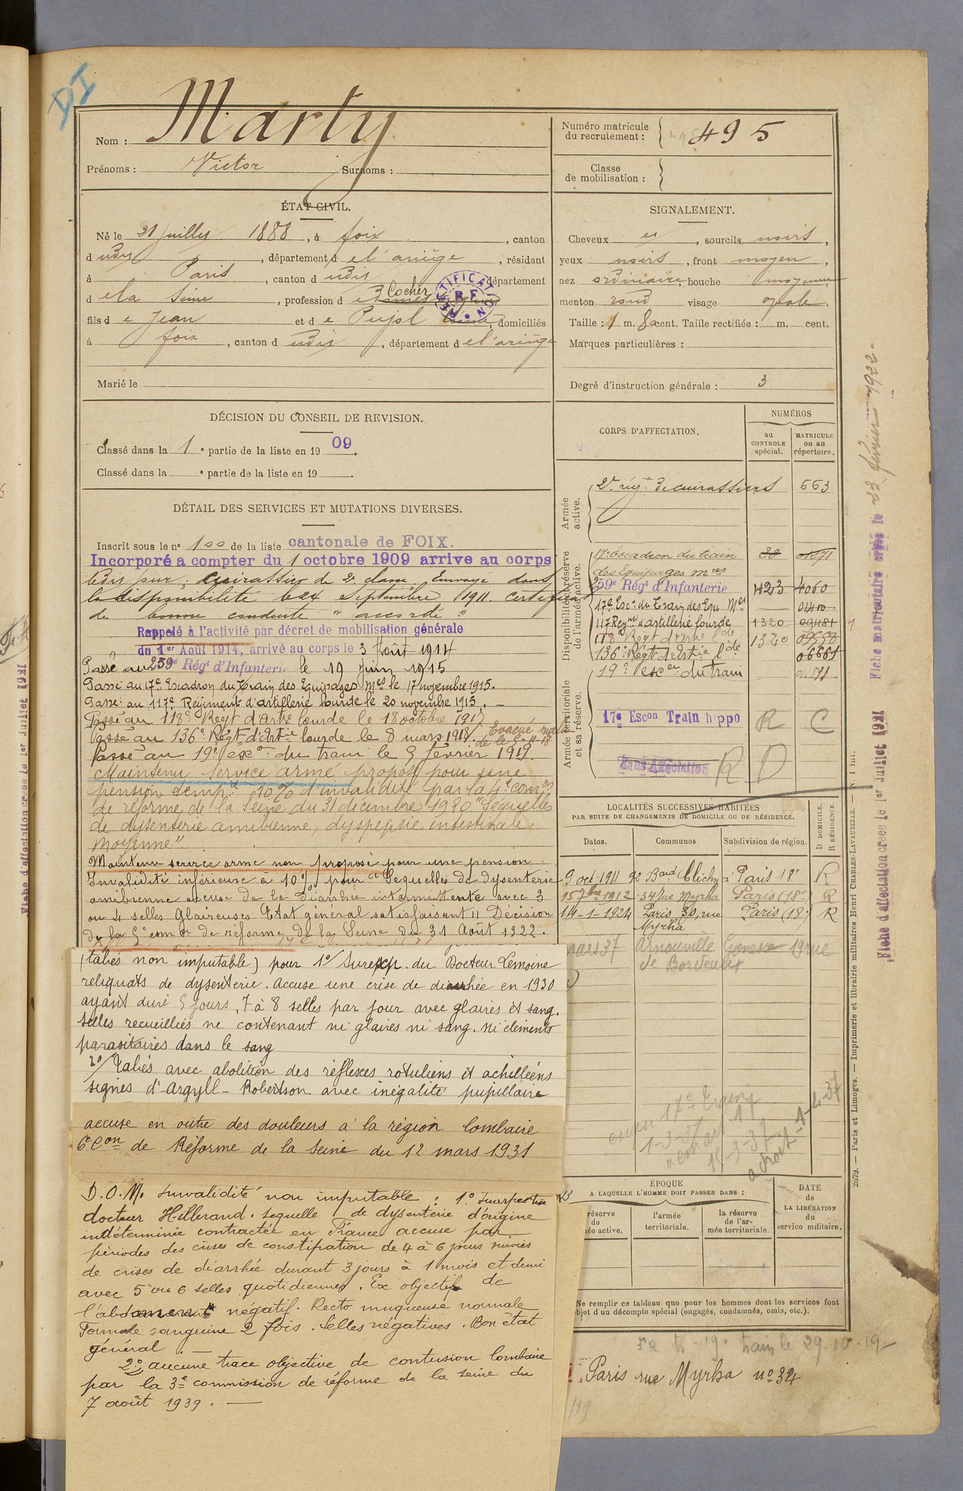 DI
Nom : Marty
Prénoms : Victor Surnoms :
Numéro matricule du recrutement : 495
Classe de mobilisation :
ÉTAT CIVIL.
Né le 21 juillet 1888, à foix, canton
d udis, département d e l'ariège, résidant
à Paris, canton d udis département
d e la Seine, profession d e Cocher
RECTIFICATION R F
fils d e Jean et d e Pujol, domiciliés
à foix, canton d udis, département d e l'ariège
Marié le
SIGNALEMENT.
Cheveux , sourcils noirs,
yeux noirs, front moyen,
nez ordinaire, bouche moyenne
menton rond visage ovale.
Taille : 1 m. cent. Taille rectifiée : m. cent.
Marques particulières :
Degré d'instruction générale : 3
DÉCISION DU CONSEIL DE REVISION.
Classé dans la 1 e partie de la liste en 1909.
Classé dans la e partie de la liste en 19
DÉTAIL DES SERVICES ET MUTATIONS DIVERSES.
Inscrit sous le n° 100 de la liste cantonale de FOIX.
Incorporé a compter du 1 octobre 1909 arrive au corps
ledit jour, cuirassier de 2e classe. Envoyé dans
la disponibilité le 24 Septembre 1911. Certificat
de bonne conduite "accordé"
Rappelé à l'activité par décret de mobilisation générale
du 1er Août 1914, arrivé au corps le 3 Août 1914
Passé au 259e Régt d'Infanterie le 19 Juin 1915
Passé au 17e Escadron du Train des Equipages Mres le 17 novembre 1915.
Passé au 117e Régiment d'artillerie lourde le 20 novembre 1915.
Passé au 118e Regt d'Artie lourde le 18 octobre 1917
Passé au 136e Régt d'Artie lourde le 8 mars 1918. Evacué malade le
Passé au 19e Escon du train le 9 février 1919.
Maintenu service armé proposé pour une
pension temp. 10% d'invalidité par la 4e comon
de réforme de la Seine du 31 décembre 1920 "Séquelles
de dysenterie amibienne, dyspepsie intestinale
moyenne"
Maintenu service armé non proposé pour une pension
Invalidité inférieure à 10% pour Sequelles de dysenterie
amibienne accuse de la Diarrhée intermittente avec 3
ou 4 selles Glaireuses. Etat général satisfaisant. Décision
de la 5e comon de réforme de la Seine du 31 Août 1922.
(tabès non imputable) pour 1°/ Surexp. du Docteur Lemoine
reliquats de dysenterie. Accuse une crise de diarrhée en 1930
ayant duré 5 jours, 7 à 8 selles par jour avec glaires et sang.
Selles recueillies ne contenant ni glaires ni sang. Ni éléments
parasitaires dans le sang
2°/ Tabès avec abolition des réflexes rotuliens et achilléens
signes d'Argyll-Robertson avec inégalité pupillaire
accuse en outre des douleurs à la région lombaire
6e Con de Réforme de la Seine du 12 mars 1931
D.O.M. Invalidité non imputable : 1° Surexpertise
docteur Hillerand. Sequelle de dysenterie d'origine
indéterminée contractée en France accuse par
périodes des crises de constipation de 4 à 6 jours suivies
de crises de diarrhée durant 3 jours à 1 mois et demi
avec 5 ou 6 selles quotidiennes. Ex objectif de
l'abdomen négatif. Recto muqueuse normale
Formule sanguine 2 fois. Selles négatives. Bon état
général. —
2° aucune trace objective de contusion lombaire
par la 3e commission de réforme de la Seine du
7 août 1939. —
CORPS D'AFFECTATION.
NUMÉROS
au CONTROLE spécial.
MATRICULE ou au répertoire.
Armée active.
2e régt de cuirassiers 663
Disponibilité et réserve de l'armée active.
17e escadron du train des équipages mres
59e Régt d'Infanterie 423 4060
17e Escn du Train des Equ. Mres
117 Regt d'artillerie lourde 1320
118e Regt d'Artie lde 1320
136e Régt d'Artie lde 06661
19e Escon du train
Armée territoriale et sa réserve.
17e Escon Train hippo R C
Sans Affectation R D
LOCALITÉS SUCCESSIVES HABITÉES
PAR SUITE DE CHANGEMENTS DE DOMICILE OU DE RÉSIDENCE.
Dates. Communes Subdivision de région. D DOMICILE. R RÉSIDENCE.
9 oct 1911 92 Bard Clichy Paris 18e R
15 7bre 1912 34 rue Myrha Paris (18e) R
14-1-1924 Paris, 30, rue Myrha Paris (18e) R
mars 37 Arnouville Gonesse 19 rue
de Bordeaux
ÉPOQUE
A LAQUELLE L'HOMME DOIT PASSER DANS :
réserve de l'armée active.
l'armée territoriale.
la réserve de l'armée territoriale.
DATE DE LA LIBÉRATION du service militaire.
Ne remplir ce tableau que pour les hommes dont les services font
objet d'un décompte spécial (engagés, condamnés, omis, etc.).
train le 29-10-19
Paris rue Myrha no 34
Fiche matriculaire créée le 23 février 1922
Fiche d'affectation créée le 1er Juillet 1921
2079. — Paris et Limoges. — Imprimerie et librairie militaires Henri CHARLES-LAVAUZELLE.
Fiche d'affectation créée le 1er Juillet 1921